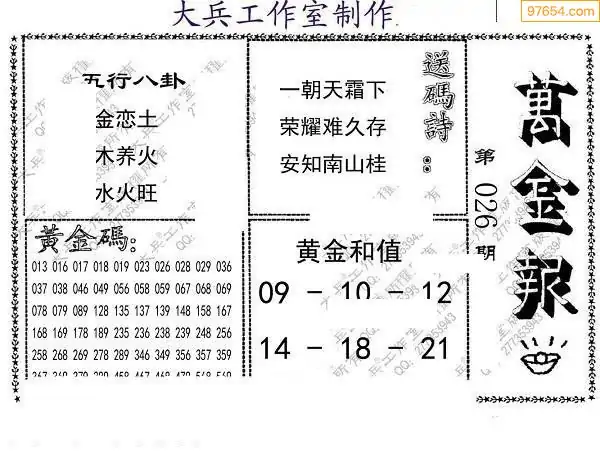 大兵工作室制作
97654.com
五行八卦
金恋土
木养火
水火旺
送碼詩:
一朝天霜下
荣耀难久存
安知南山桂
萬金報
第026期
黄金碼:
013 016 017 018 019 023 026 028 029 036
037 038 046 049 056 057 065 067 068 069
078 079 089 128 135 135 137 139 148 158 167
168 169 178 189 235 236 238 239 248 256
258 268 269 278 289 346 347 356 357 359
黄金和值
09 - 10 - 12
14 - 18 - 21